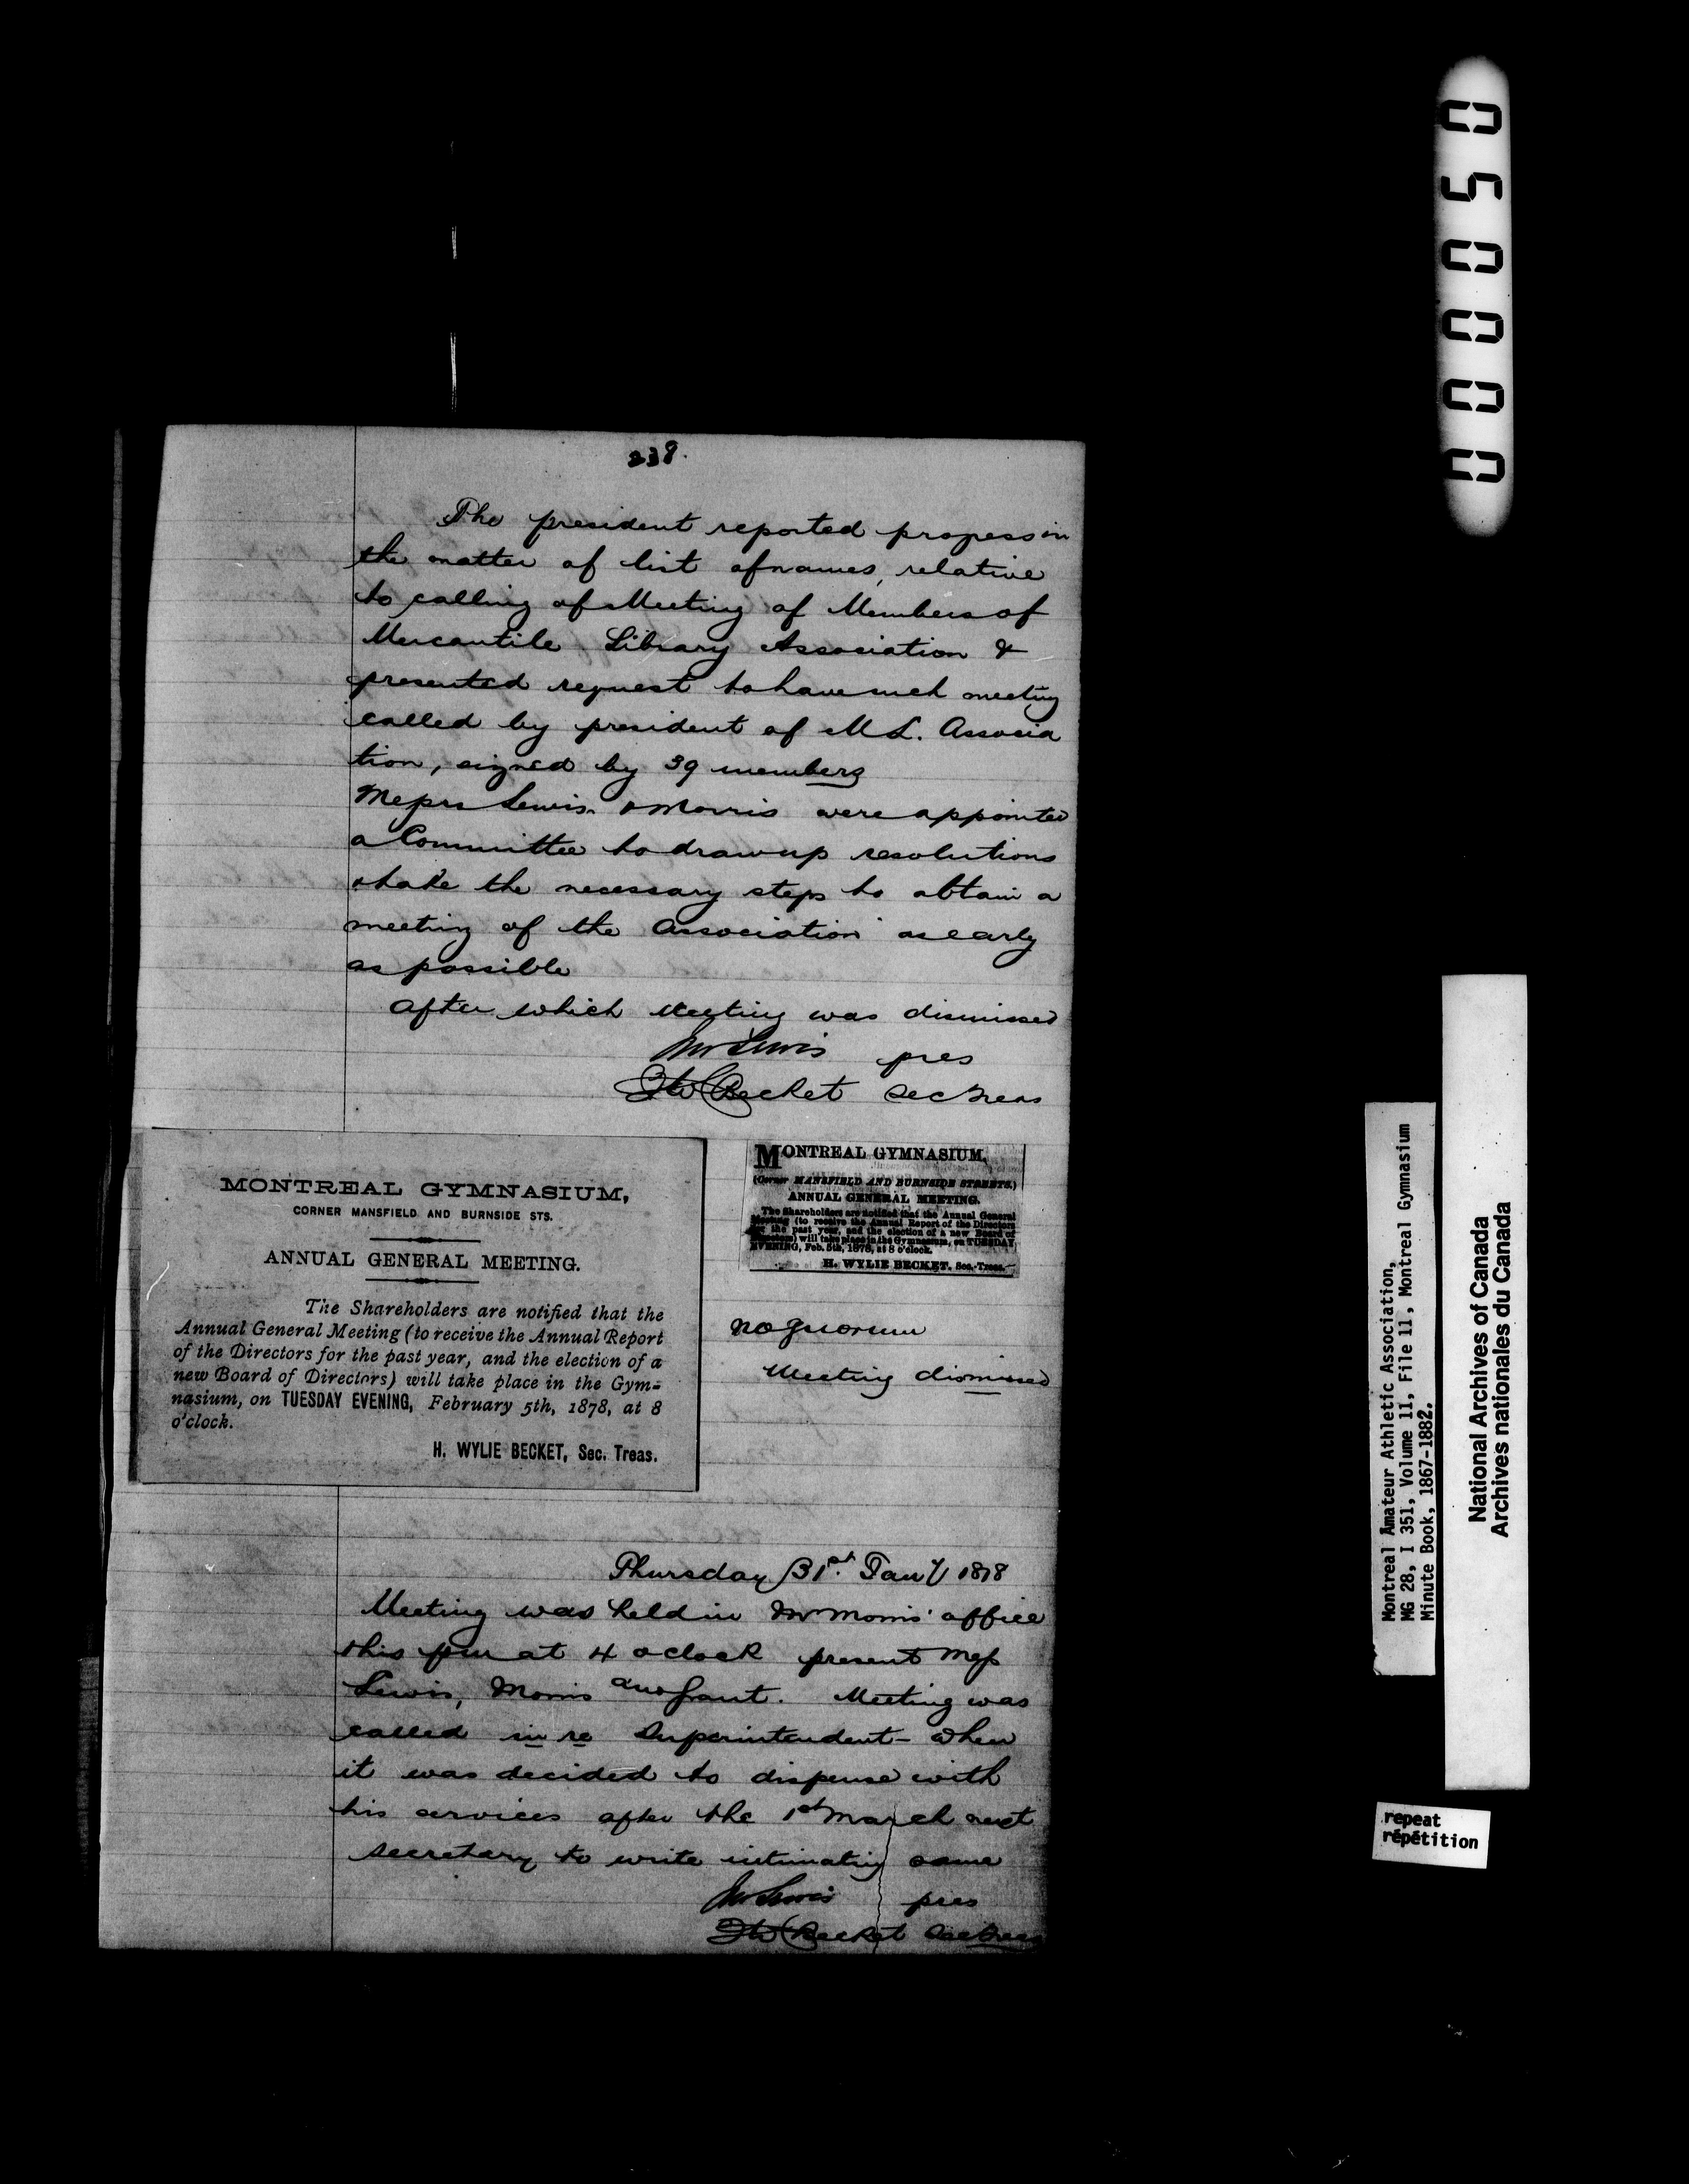 238.
The president reported progress in
the matter of list of names, relative
to calling of Meeting of Members of
Mercantile Library Association &
presented request to have such meeting
called by president of M L. Associa
tion, signed by 39 members
Messrs Lewis & Morris were appointed
a Committee to draw up resolutions
& take the necessary steps to obtain a
meeting of the Association as early
as possible
After which Meeting was dismissed
Lewis pres
HW Becket Sec Treas
MONTREAL GYMNASIUM,
CORNER MANSFIELD AND BURNSIDE STS.
ANNUAL GENERAL MEETING.
The Shareholders are notified that the
Annual General Meeting (to receive the Annual Report
of the Directors for the past year, and the election of a
new Board of Directors) will take place in the Gym-
nasium, on TUESDAY EVENING, February 5th, 1878, at 8
o'clock.
H. WYLIE BECKET, Sec. Treas.
MONTREAL GYMNASIUM,
(Corner MANSFIELD AND BURNSIDE STREETS.)
ANNUAL GENERAL MEETING.
The Shareholders are notified that the Annual General
Meeting (to receive the Annual Report of the Directors
for the past year, and the election of a new Board of
Directors) will take place in the Gymnasium, on TUESDAY
EVENING, Feb. 5th, 1878, at 8 o'clock.
H. WYLIE BECKET, Sec.-Treas.
no quorum
Meeting dismissed
Thursday 31st. Jany 1878
Meeting was held in Mr Morris' office
this pm at 4 oclock present Mess
Lewis, Morris and Grant. Meeting was
called in re Superintendent - when
it was decided to dispense with
his services after the 1st March next
secretary to write intimating same
Lewis pres
HW Becket Sec Treas
000050
Montreal Amateur Athletic Association,
MG 28, I 351, Volume 11, File 11, Montreal Gymnasium
Minute Book, 1867-1882.
National Archives of Canada
Archives nationales du Canada
repeat
répétition